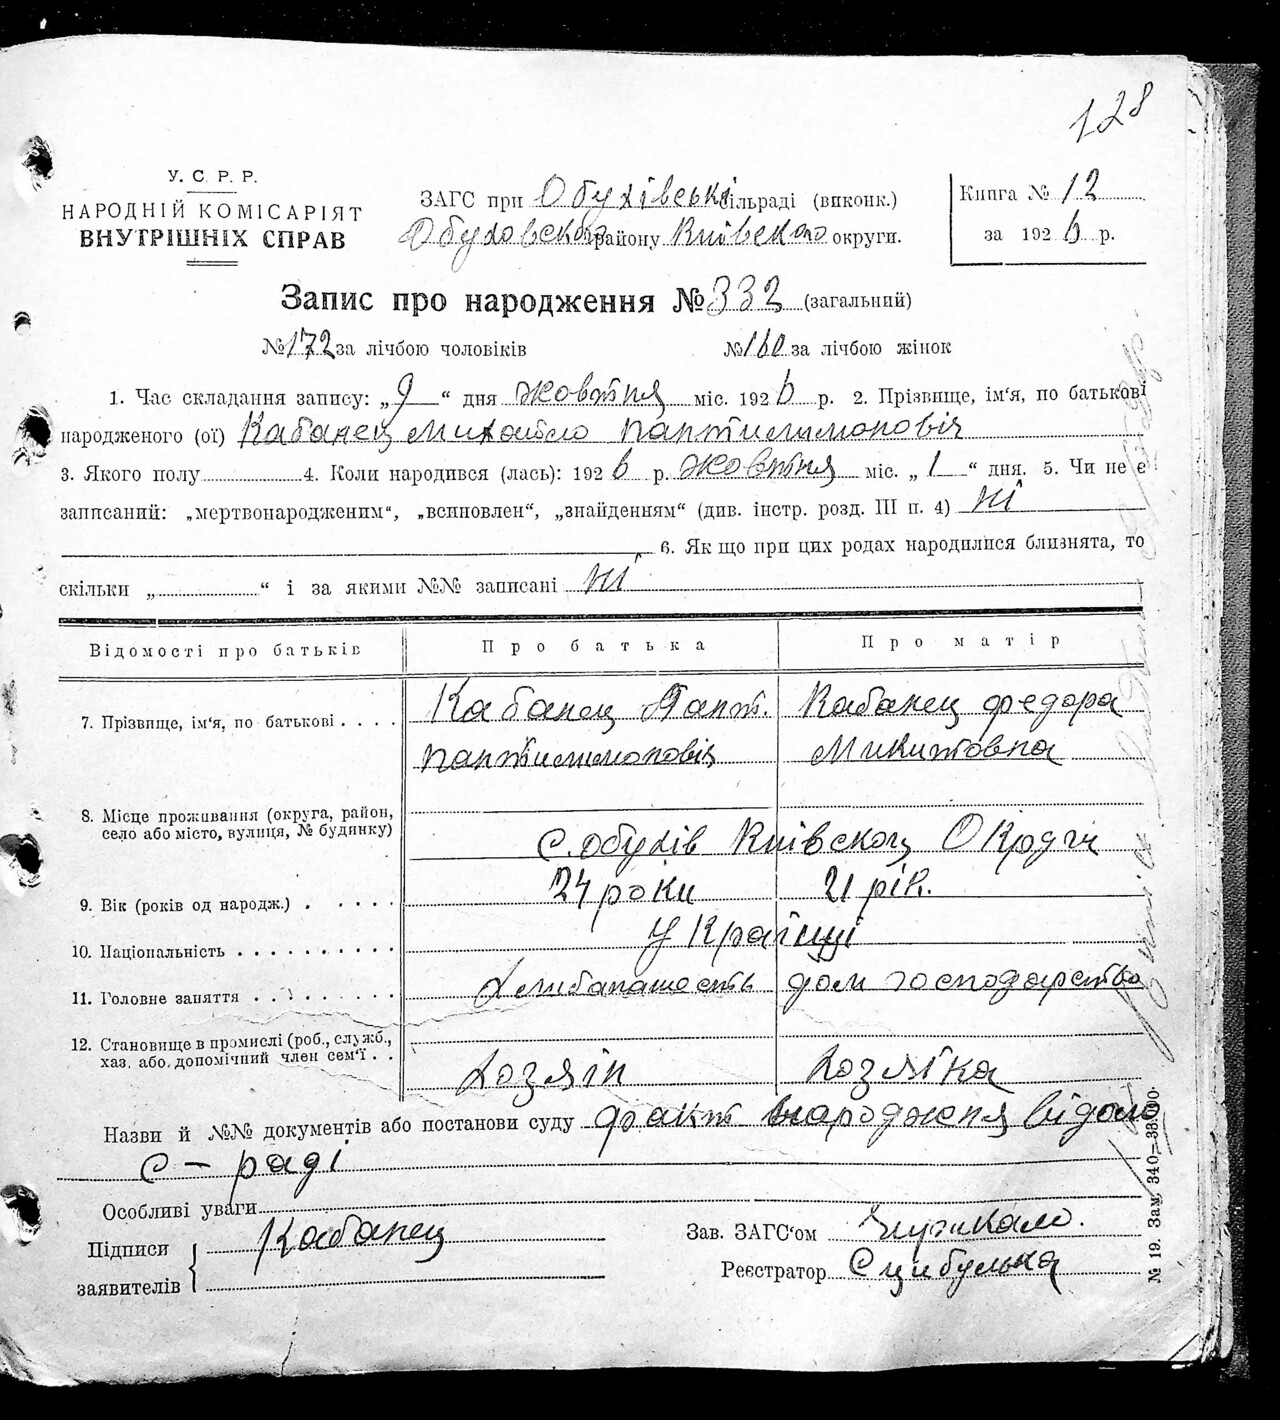 128
У. С. Р. Р.
НАРОДНІЙ КОМІСАРІЯТ
ВНУТРІШНІХ СПРАВ
ЗАГС при Обухівські сільраді (виконк.)
Обуховского району Київского округи.
Книга № 12
за 1926 р.
Запис про народження № 332 (загальний)
№ 172 за лічбою чоловіків № 160 за лічбою жінок
1. Час складання запису: „9“ дня жовтня міс. 1926 р. 2. Прізвище, ім‘я, по батькові
народженого (ої) Кабанец Михайло Пантилимонович
3. Якого полу 4. Коли народився (лась): 1926 р. жовтня міс. „1“ дня. 5. Чи не є
записаний: „мертвонародженим“, „всиновлен“, „знайденням“ (див. інстр. розд. III п. 4) ні
6. Як що при цих родах народилися близнята, то
скільки „ “ і за якими №№ записані ні
Відомості про батьків Про батька Про матір
7. Прізвище, ім‘я, по батькові Кабанец Пант. Кабанец Федора
Пантилимоновіч Микитовна
8. Місце проживання (округа, район,
село або місто, вулиця, № будинку) с. Обухів Київскої Округи
9. Вік (років од народж.) 24 роки 21 рік.
10. Національність Українці
11. Головне заняття Хлибапашесть дом господарство
12. Становище в промислі (роб., служб.,
хаз. або допомічний член сем‘ї Хозяїн Хозяїка
Назви й №№ документів або постанови суду факт народження відом
с-раді
Особливі уваги
Підписи
заявителів Кабанец
Зав. ЗАГС‘ом
Реєстратор Сцибулька
№ 19. Зам. 340—38.000.